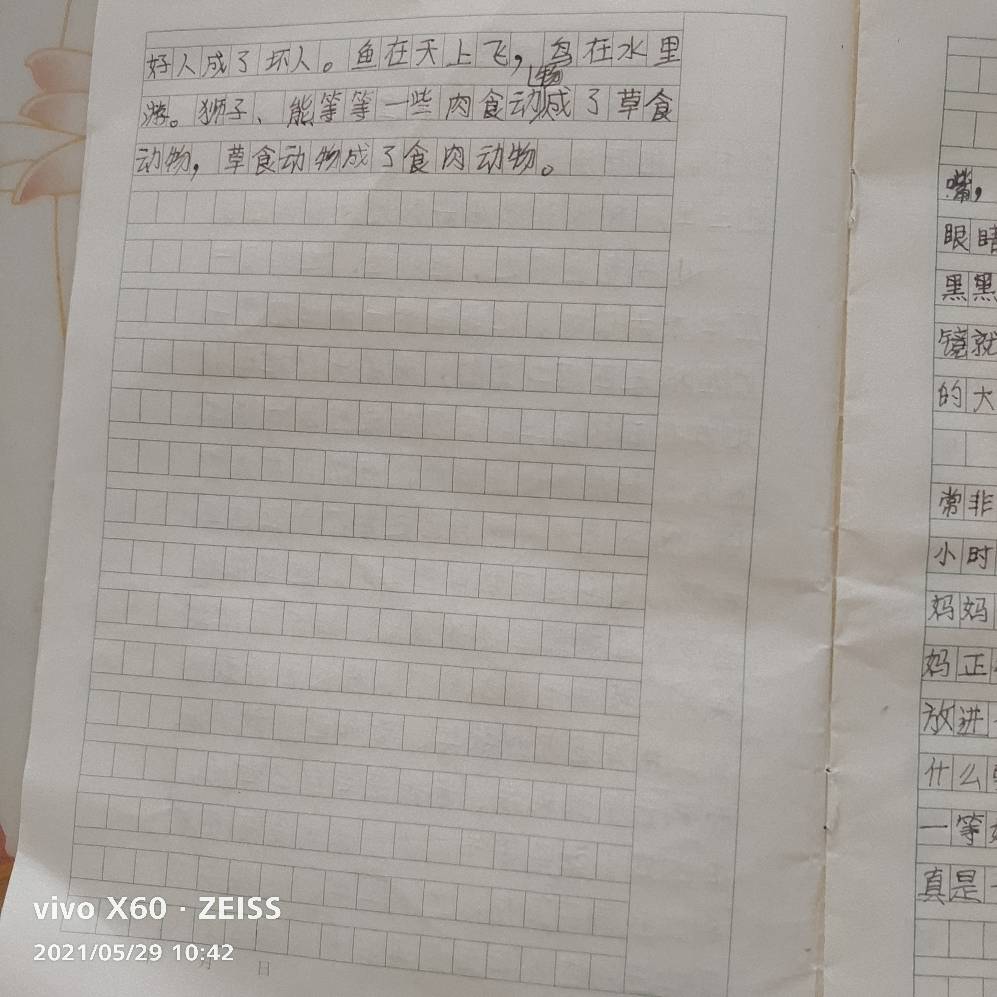 好人成了坏人。鱼在天上飞，鸟在水里
游。狮子、熊等等一些肉食动物成了草食
动物，草食动物成了食肉动物。
月 日
嘴，
眼睛
黑黑
镜就
的大
常非
小时
妈妈
妈正
放进
什么
一等
真是一
vivo X60 · ZEISS
2021/05/29 10:42